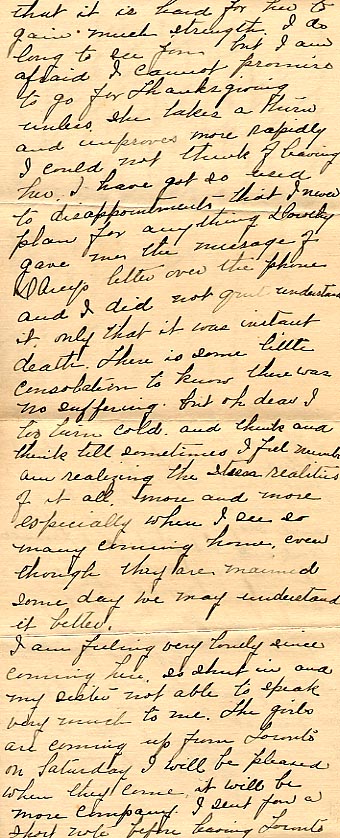 that it is hard for her to
gain much strength. I do
long to see you but I am
afraid I cannot promise
to go for Thanksgiving
unless she takes a turn
and improves more rapidly
I could not think of leaving
her. I have got so used
to disappointments that I never
plan for anything
gave me the message of
letter over the phone
and I did not quit understand
it, only that it was instant
death. There is some little
consolation to know there was
no suffering. but oh dear I
turn cold. and think and
think till sometimes I feel numb
am realizing the realities
of it all, more and more
especially when I see so
many coming home, even
though they are maimed
some day we may understand
it better.
I am feeling very lonely since
coming here, so shut in and
my sister not able to speak
very much to me. The girls
are coming up from Toronto
on Saturday I will be pleased
when they come, it will be
more company. I sent you a
short note before leaving Toronto